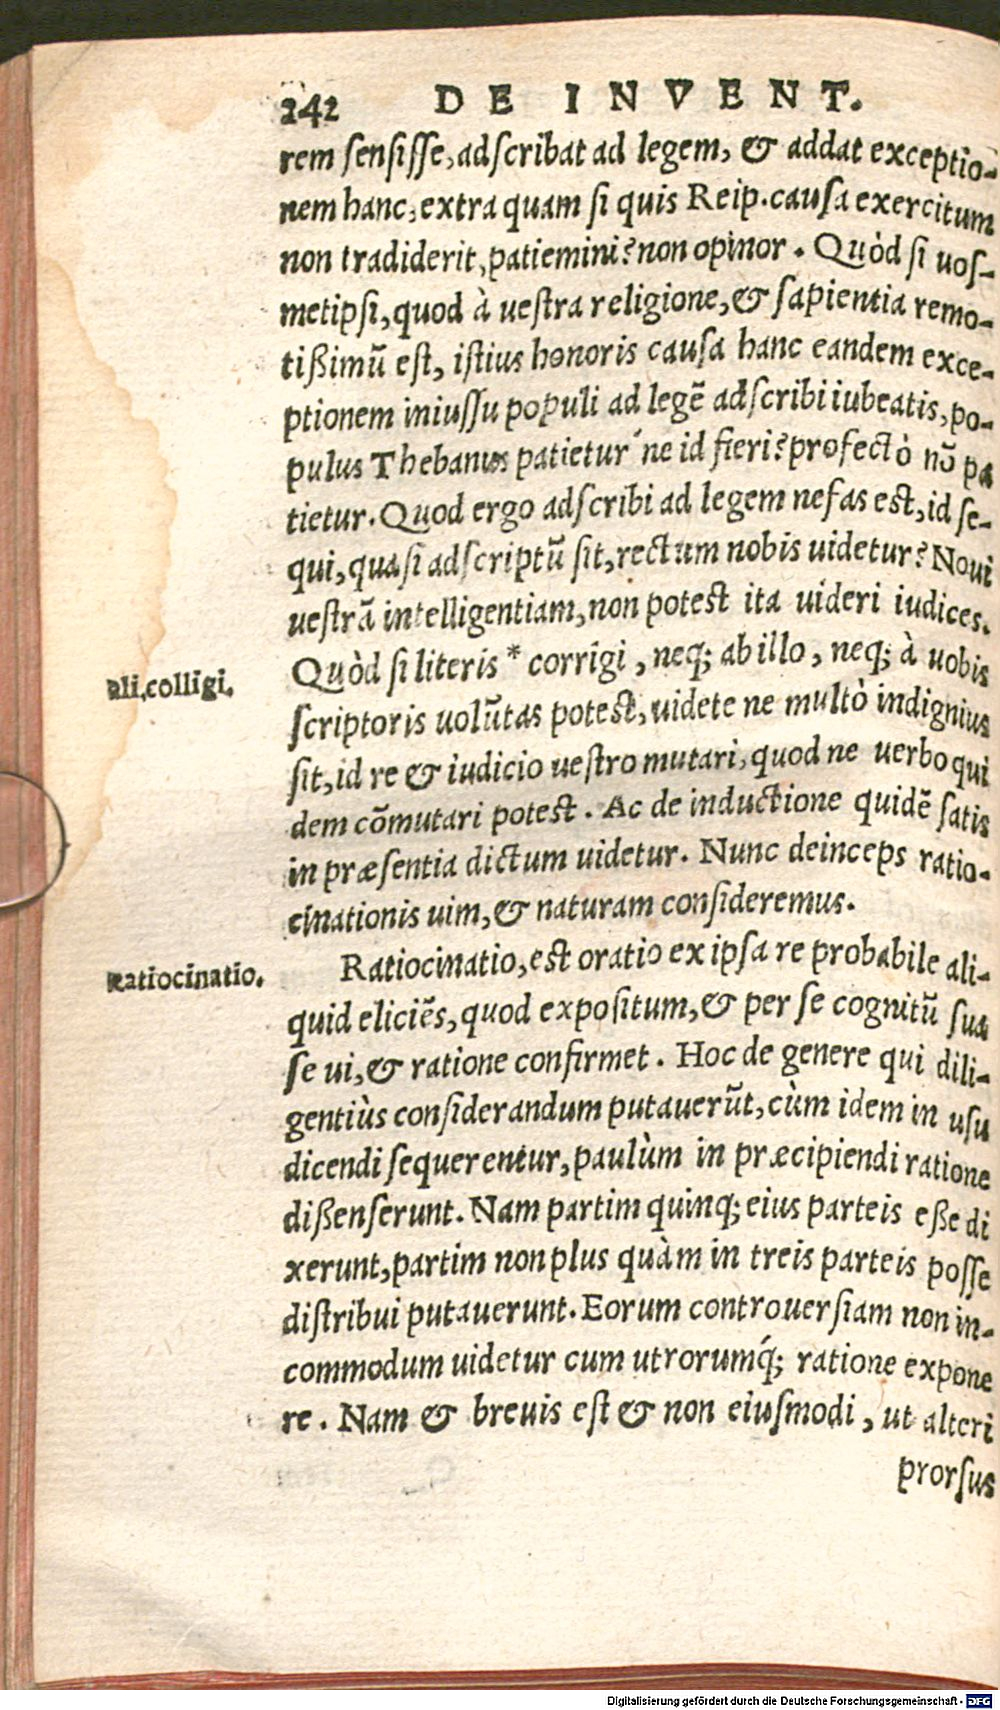 242 DE INVENT.
rem sensisse, adscribat ad legem, & addat exceptio-
nem hanc, extra quam si quis Reip. causa exercitum
non tradiderit, patiemini? non opinor. Quòd si uos-
metipsi, quod à uestra religione, & sapientia remo-
tißimũ est, istius honoris causa hanc eandem exce-
ptionem iniussu populi ad legẽ adscribi iubeatis, po-
pulus Thebanus patietur´ne id fieri? profectò nõ pa
tietur. Quod ergo adscribi ad legem nefas est, id se-
qui, quasi adscriptũ sit, rectum nobis uidetur? Noui
uestrã intelligentiam, non potest ita uideri iudices.
Quòd si literis * corrigi, neq; ab illo, neq; à uobis
ali. colligi.
scriptoris uolũtas potest, uidete ne multò indignius
sit, id re & iudicio uestro mutari, quod ne uerbo qui
dem cõmutari potest. Ac de inductione quidẽ satis
in præsentia dictum uidetur. Nunc deinceps ratio-
cinationis uim, & naturam consideremus.
Ratiocinatio.
Ratiocinatio, est oratio ex ipsa re probabile ali-
quid eliciẽs, quod expositum, & per se cognitũ sua
se ui, & ratione confirmet. Hoc de genere qui dili-
gentiùs considerandum putauerũt, cùm idem in usu
dicendi sequerentur, paulùm in præcipiendi ratione
dißenserunt. Nam partim quinq; eius parteis eße di
xerunt, partim non plus quàm in treis parteis posse
distribui putauerunt. Eorum controuersiam non in-
commodum uidetur cum utrorumq́; ratione expone
re. Nam & breuis est & non eiusmodi, ut alteri
prorsus
Digitalisierung gefördert durch die Deutsche Forschungsgemeinschaft - DFG